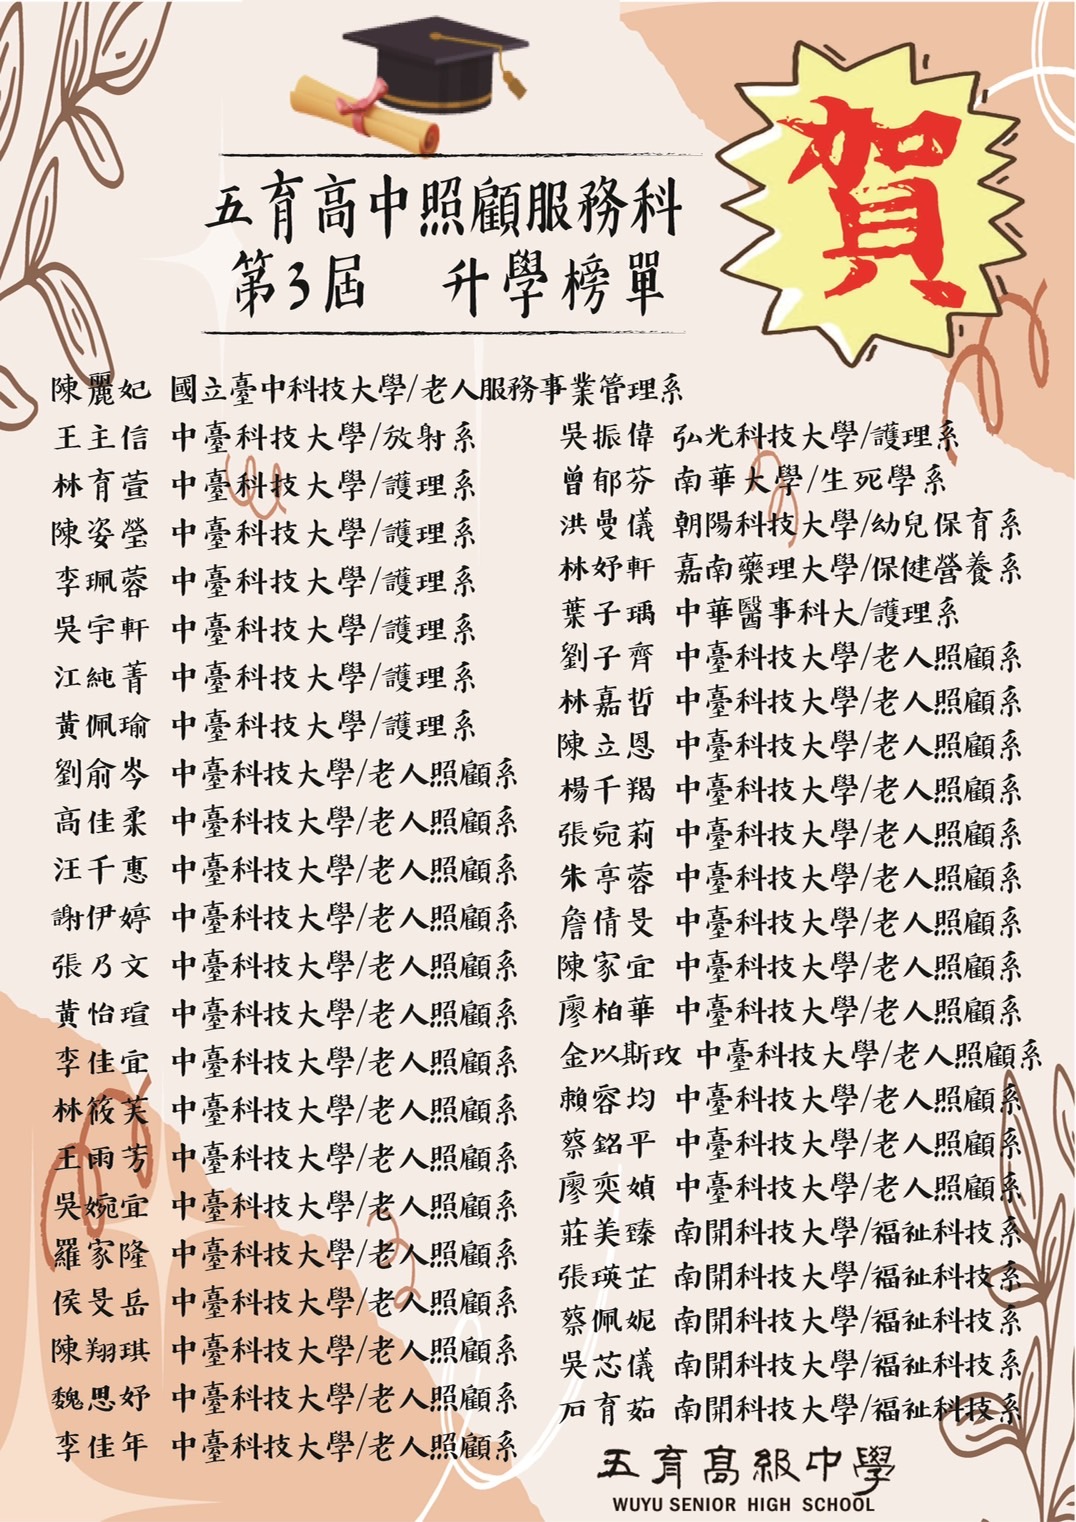 賀
五育高中照顧服務科
第3屆 升學榜單
陳麗妃 國立臺中科技大學/老人服務事業管理系
王主信 中臺科技大學/放射系
林育萱 中臺科技大學/護理系
陳姿瑩 中臺科技大學/護理系
李珮蓉 中臺科技大學/護理系
吳宇軒 中臺科技大學/護理系
江純菁 中臺科技大學/護理系
黃佩瑜 中臺科技大學/護理系
劉俞岑 中臺科技大學/老人照顧系
高佳柔 中臺科技大學/老人照顧系
汪千惠 中臺科技大學/老人照顧系
謝伊婷 中臺科技大學/老人照顧系
張乃文 中臺科技大學/老人照顧系
黃怡瑄 中臺科技大學/老人照顧系
李佳宜 中臺科技大學/老人照顧系
林筱芙 中臺科技大學/老人照顧系
王雨芳 中臺科技大學/老人照顧系
吳婉宜 中臺科技大學/老人照顧系
羅家隆 中臺科技大學/老人照顧系
侯旻岳 中臺科技大學/老人照顧系
陳翔琪 中臺科技大學/老人照顧系
魏思妤 中臺科技大學/老人照顧系
李佳年 中臺科技大學/老人照顧系
吳振偉 弘光科技大學/護理系
曾郁芬 南華大學/生死學系
洪曼儀 朝陽科技大學/幼兒保育系
林妤軒 嘉南藥理大學/保健營養系
葉子瑀 中華醫事科大/護理系
劉子齊 中臺科技大學/老人照顧系
林嘉哲 中臺科技大學/老人照顧系
陳立恩 中臺科技大學/老人照顧系
楊千羯 中臺科技大學/老人照顧系
張宛莉 中臺科技大學/老人照顧系
朱亭蓉 中臺科技大學/老人照顧系
詹倩旻 中臺科技大學/老人照顧系
陳家宜 中臺科技大學/老人照顧系
廖柏華 中臺科技大學/老人照顧系
金以斯玫 中臺科技大學/老人照顧系
賴容均 中臺科技大學/老人照顧系
蔡銘平 中臺科技大學/老人照顧系
廖奕媜 中臺科技大學/老人照顧系
莊美臻 南開科技大學/福祉科技系
張瑛芷 南開科技大學/福祉科技系
蔡佩妮 南開科技大學/福祉科技系
吳芯儀 南開科技大學/福祉科技系
石育茹 南開科技大學/福祉科技系
五育高級中學
WUYU SENIOR HIGH SCHOOL